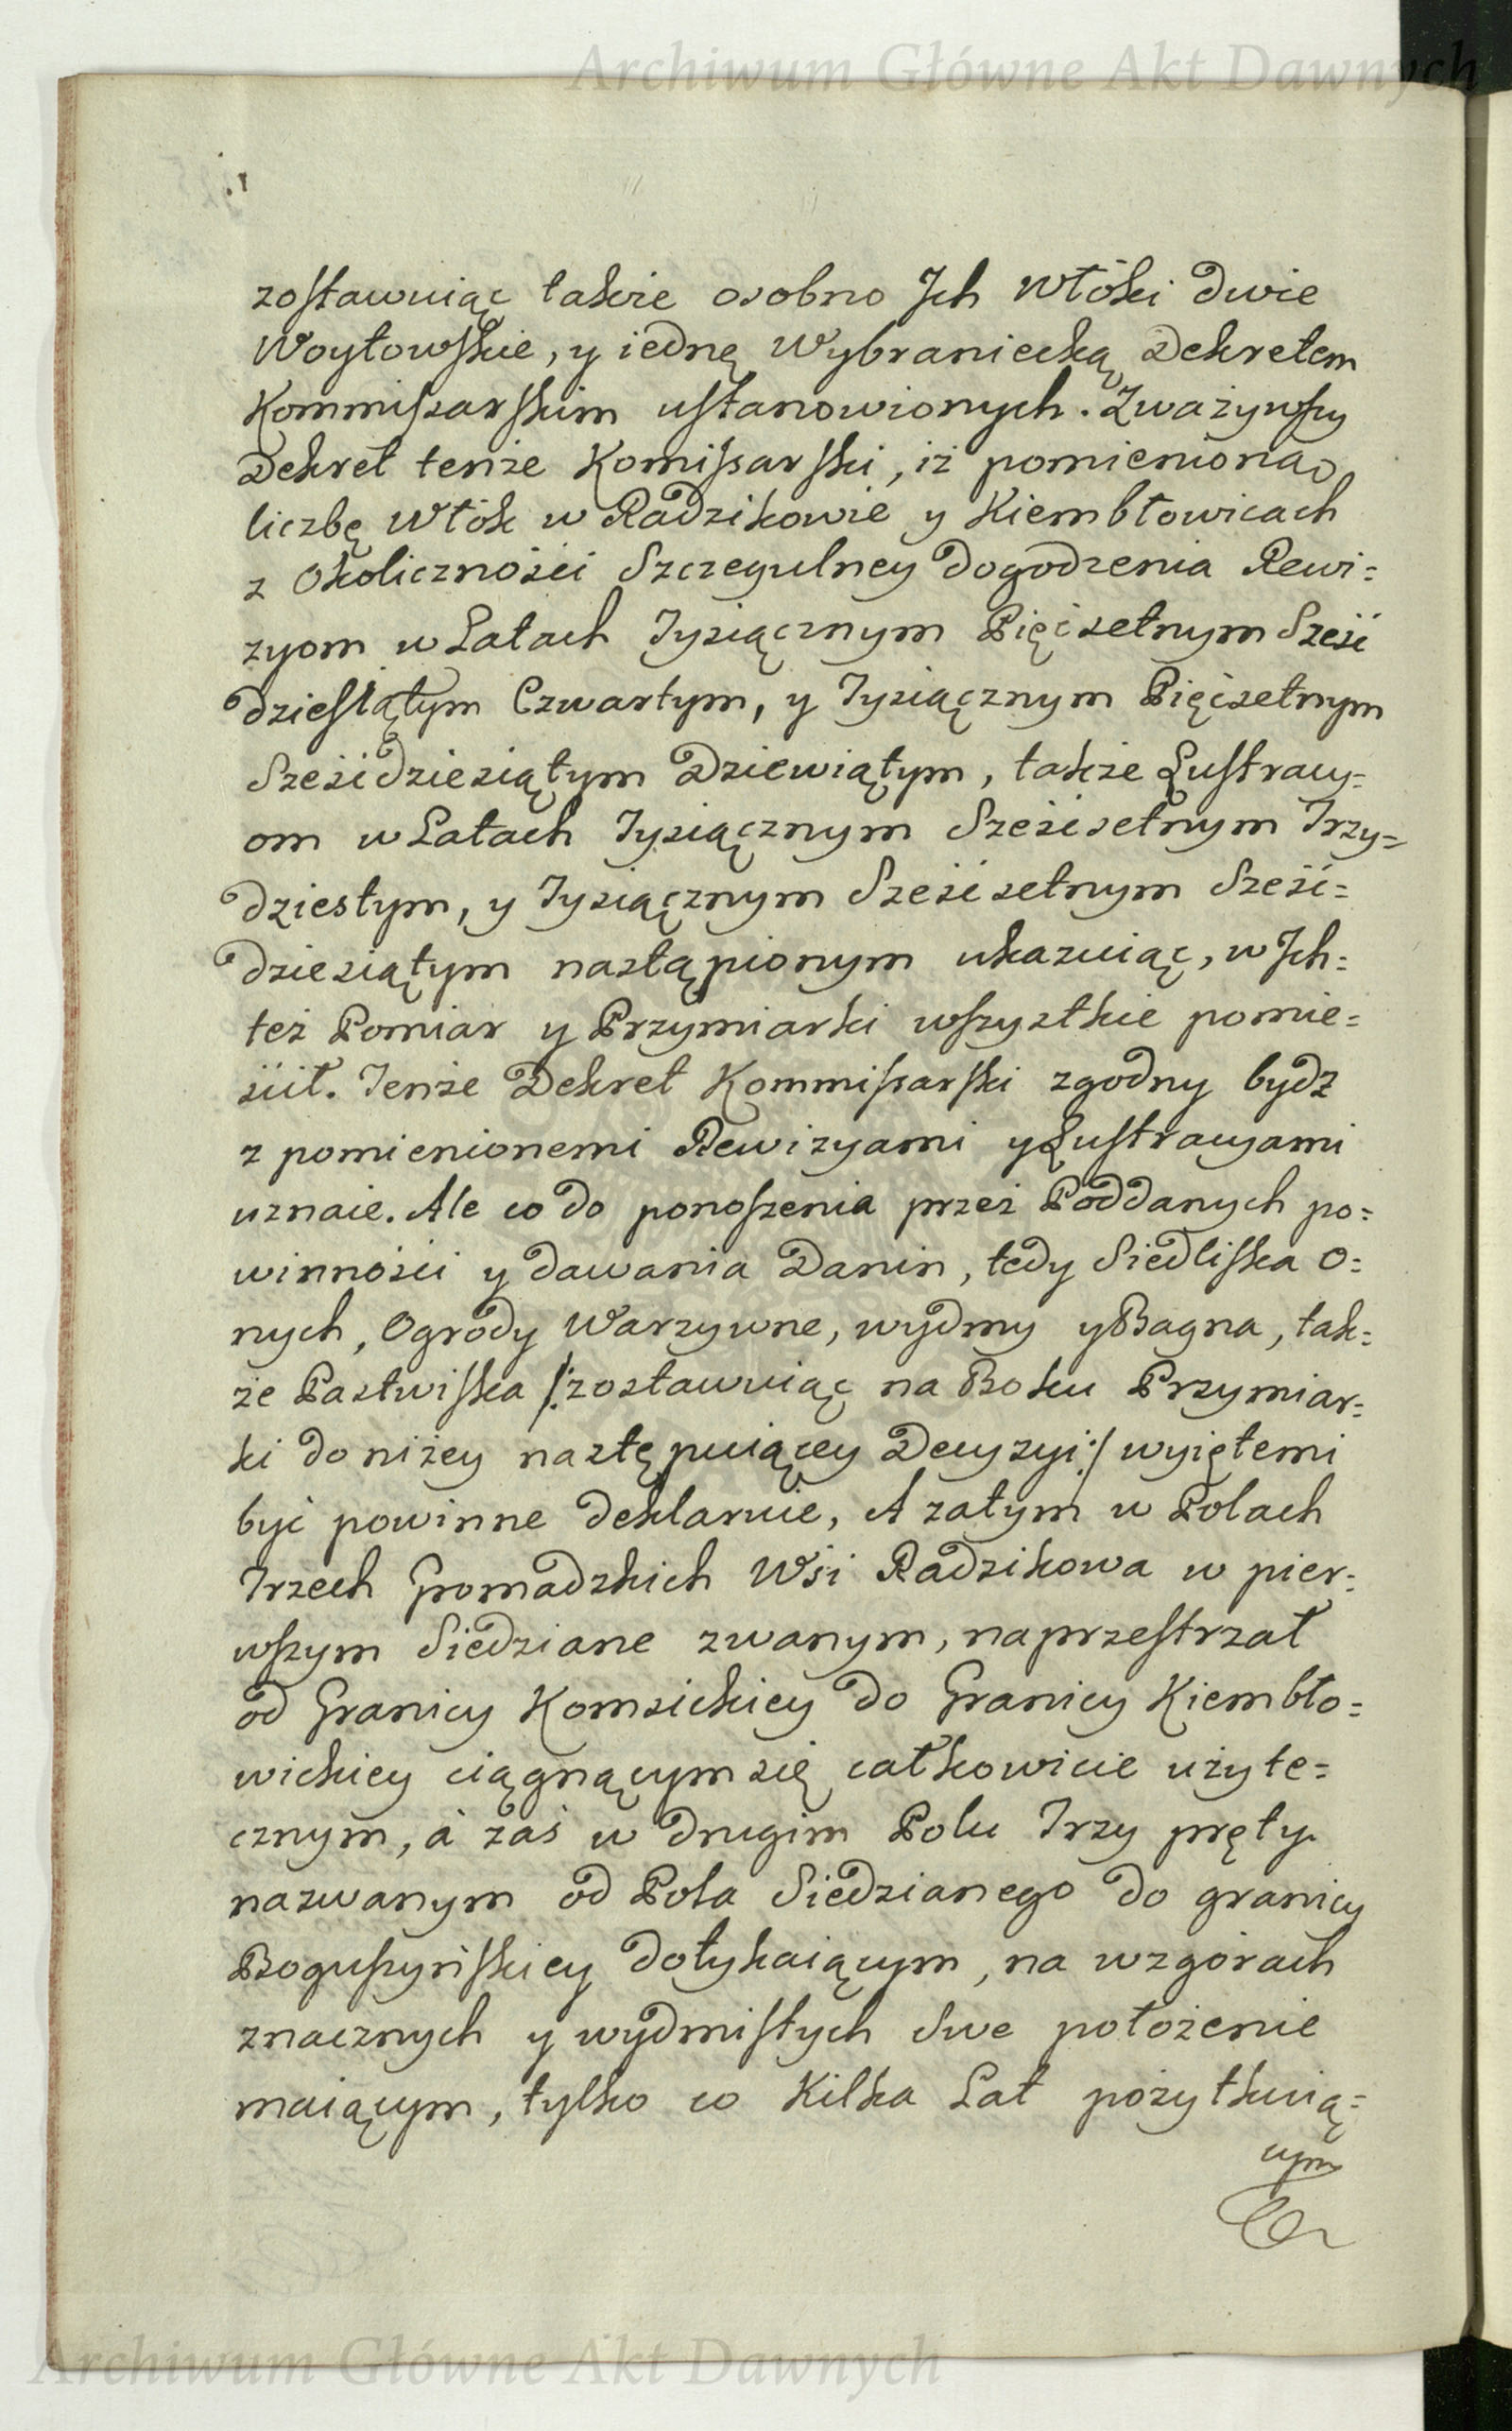 Archiwum Główne Akt Dawnych
zostawuiąc także osobno Jch Włóki dwie
Woytowskie, y iednę Wybraniecką Dekretem
Kommissarskim ustanowionych. Zważywszy
Dekret tenże Komissarski, iż pomienioną
liczbę Włók w Radzikowie y Kiembłowicach
z Okoliczności Szczegulney dogodzenia Rewi=
zyom w Latach Tysiącznym Pięćsetnym Sześć
dziesiątym Czwartym, y Tysiącznym Pięćsetnym
Sześćdziesiątym Dziewiątym, także Lustracy=
om w Latach Tysiącznym Sześćsetnym Trzy=
dziestym, y Tysiącznym Sześćsetnym Sześć=
dziesiątym nastąpionym ukazuiąc, w Jch=
też Pomiar y Przymiarki wszystkie pomie=
ścił. Tenże Dekret Kommissarski zgodny bydz
z pomienionemi Rewizyami y Lustracyami
uznaie. Ale co do ponoszenia przez Poddanych po=
winności y dawania Danin, tedy Siedliska O=
nych, Ogrody Warzywne, wydmy y Bagna, tak=
że Pastwiska /:zostawuiąc na Boku Przymiar=
ki do niżey następuiącey Decyzyi:/ wyiętemi
być powinne deklaruie, A zatym w Polach
Trzech Gromadzkich Wsi Radzikowa w pier=
wszym Siedziane zwanym, naprzestrzał
od Granicy Komsickiey do Granicy Kiembło=
wickiey ciągnącym się całkowicie użyte=
cznym, á zaś w drugim Polu Trzy pręty
nazwanym od Pola Siedzianego do granicy
Boguszyńskiey dotykaiącym, na wzgórach
znacznych y wydmistych Swe położenie
maiącym, tylko co Kilka Lat pożytkuią=
cym
Archiwum Główne Akt Dawnych